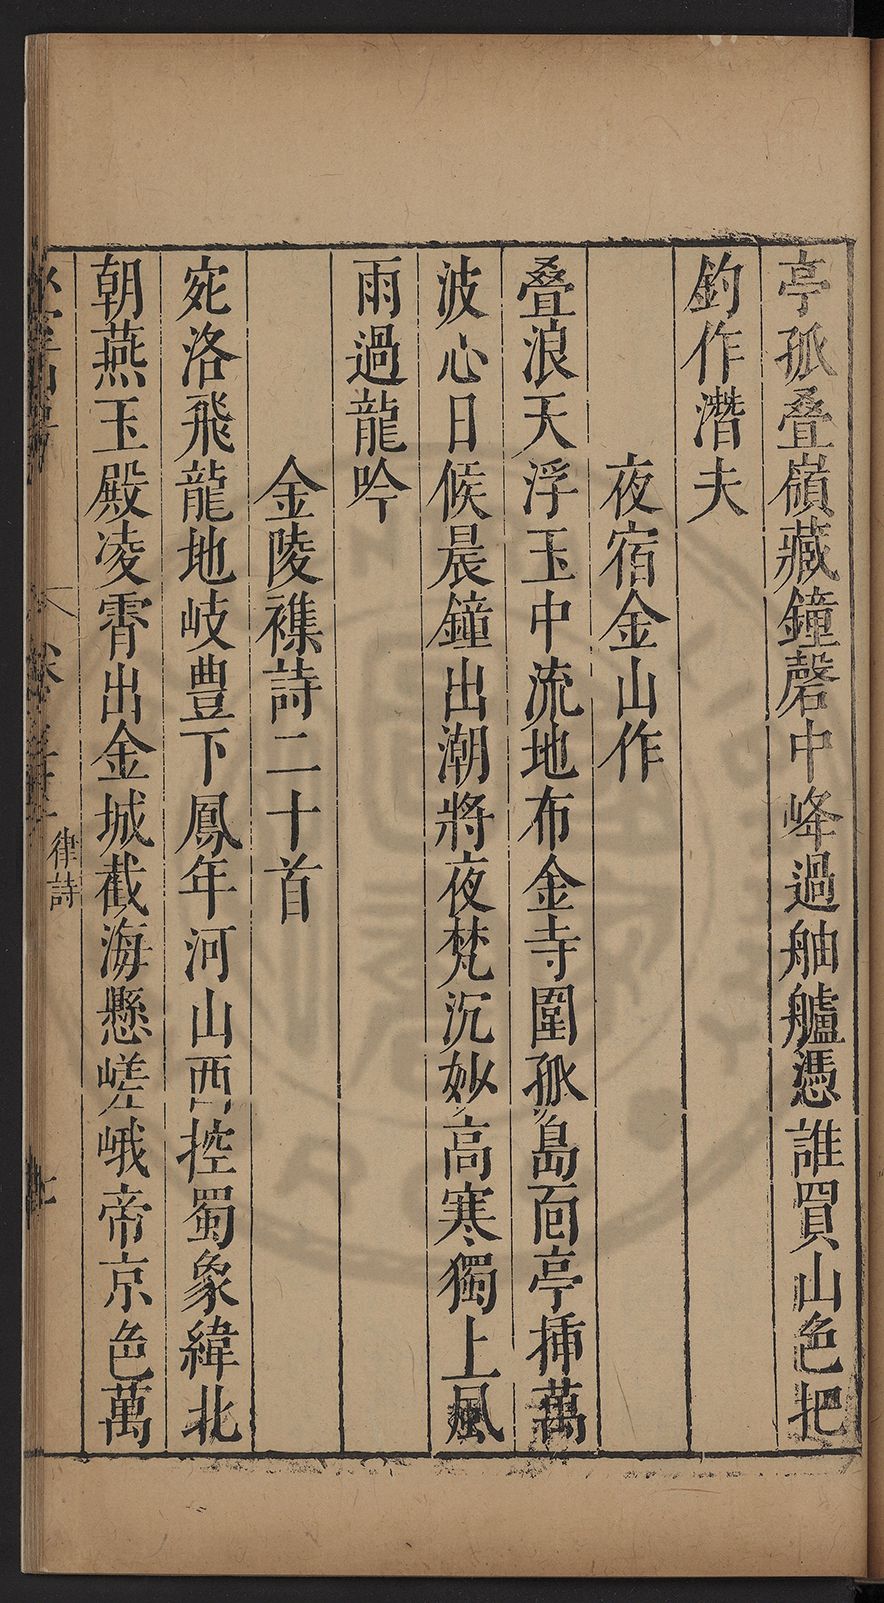 亭孤叠嶺藏鐘磬中峰過舳艫憑誰買山色把
釣作潛夫
夜宿金山作
叠浪天浮玉中流地布金寺圍孤島靣亭揷萬
波心日候晨鐘出潮將夜梵沉妙高寒獨上風
雨過龍吟
金陵襍詩二十首
宛洛飛龍地岐豊下鳳年河山西控蜀象緯北
朝燕玉殿凌霄出金城截海懸嵯峨帝京色萬
律詩